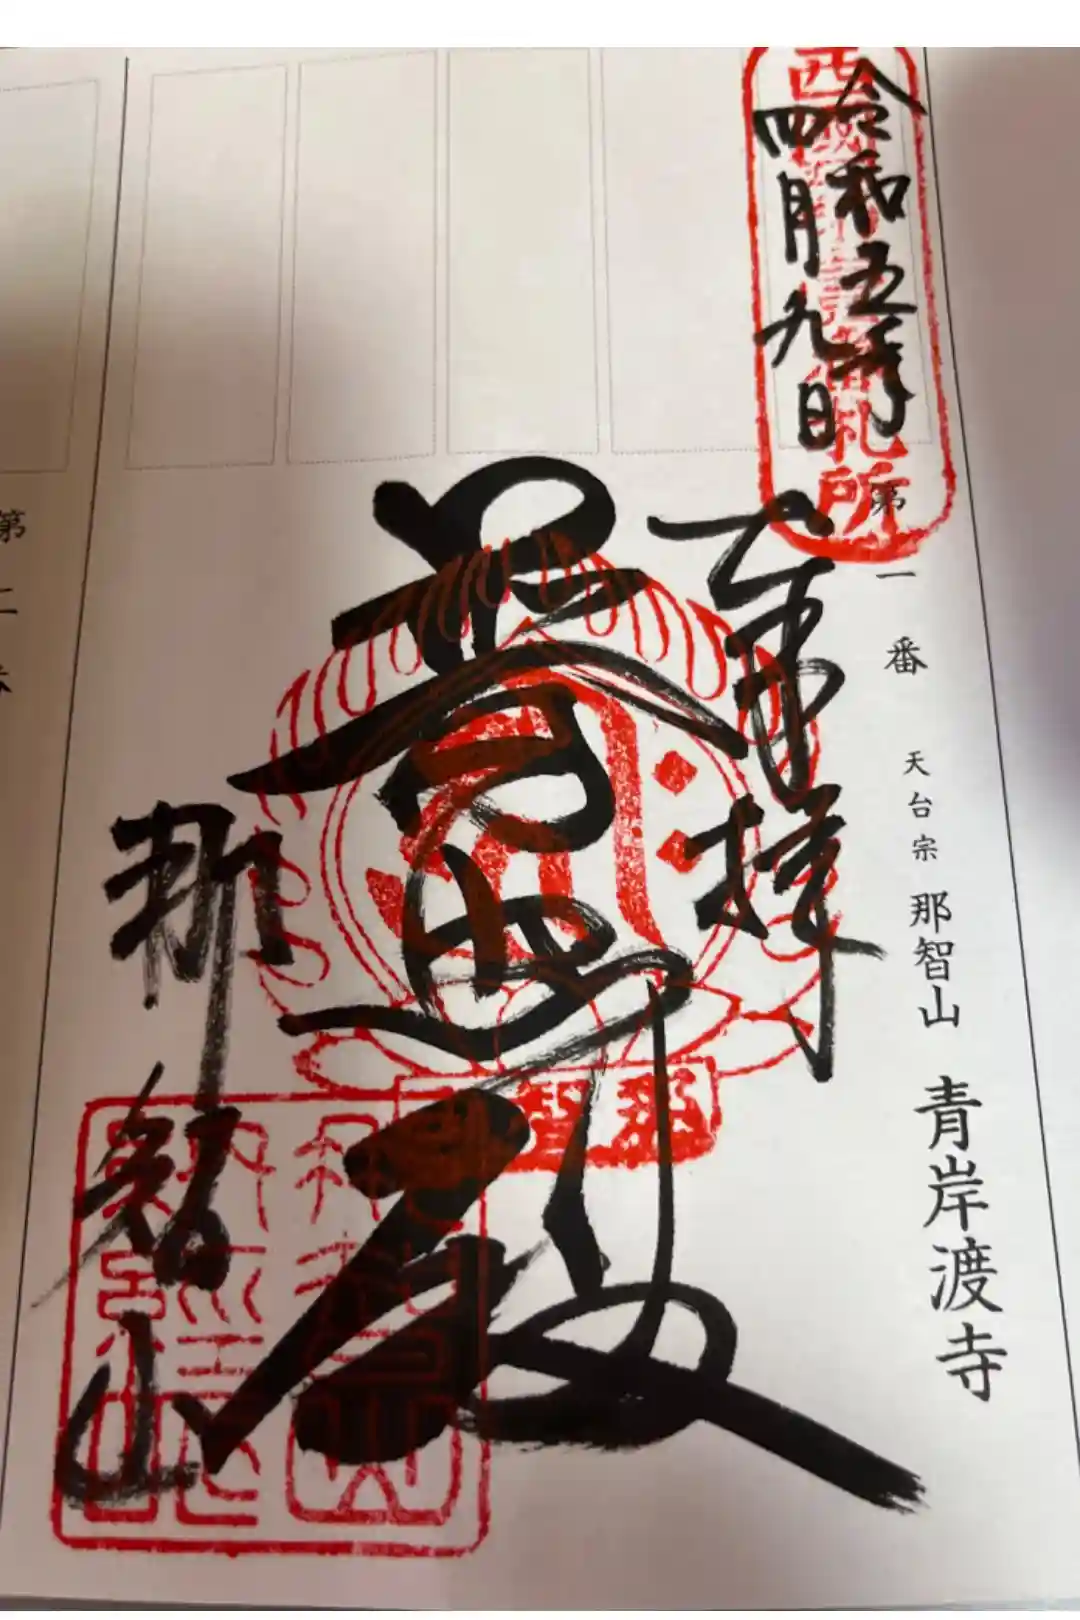 令和五年
四月九日
奉拝
普照殿
那智山
第一番 天台宗 那智山 青岸渡寺
札所
那智
那智山
第二